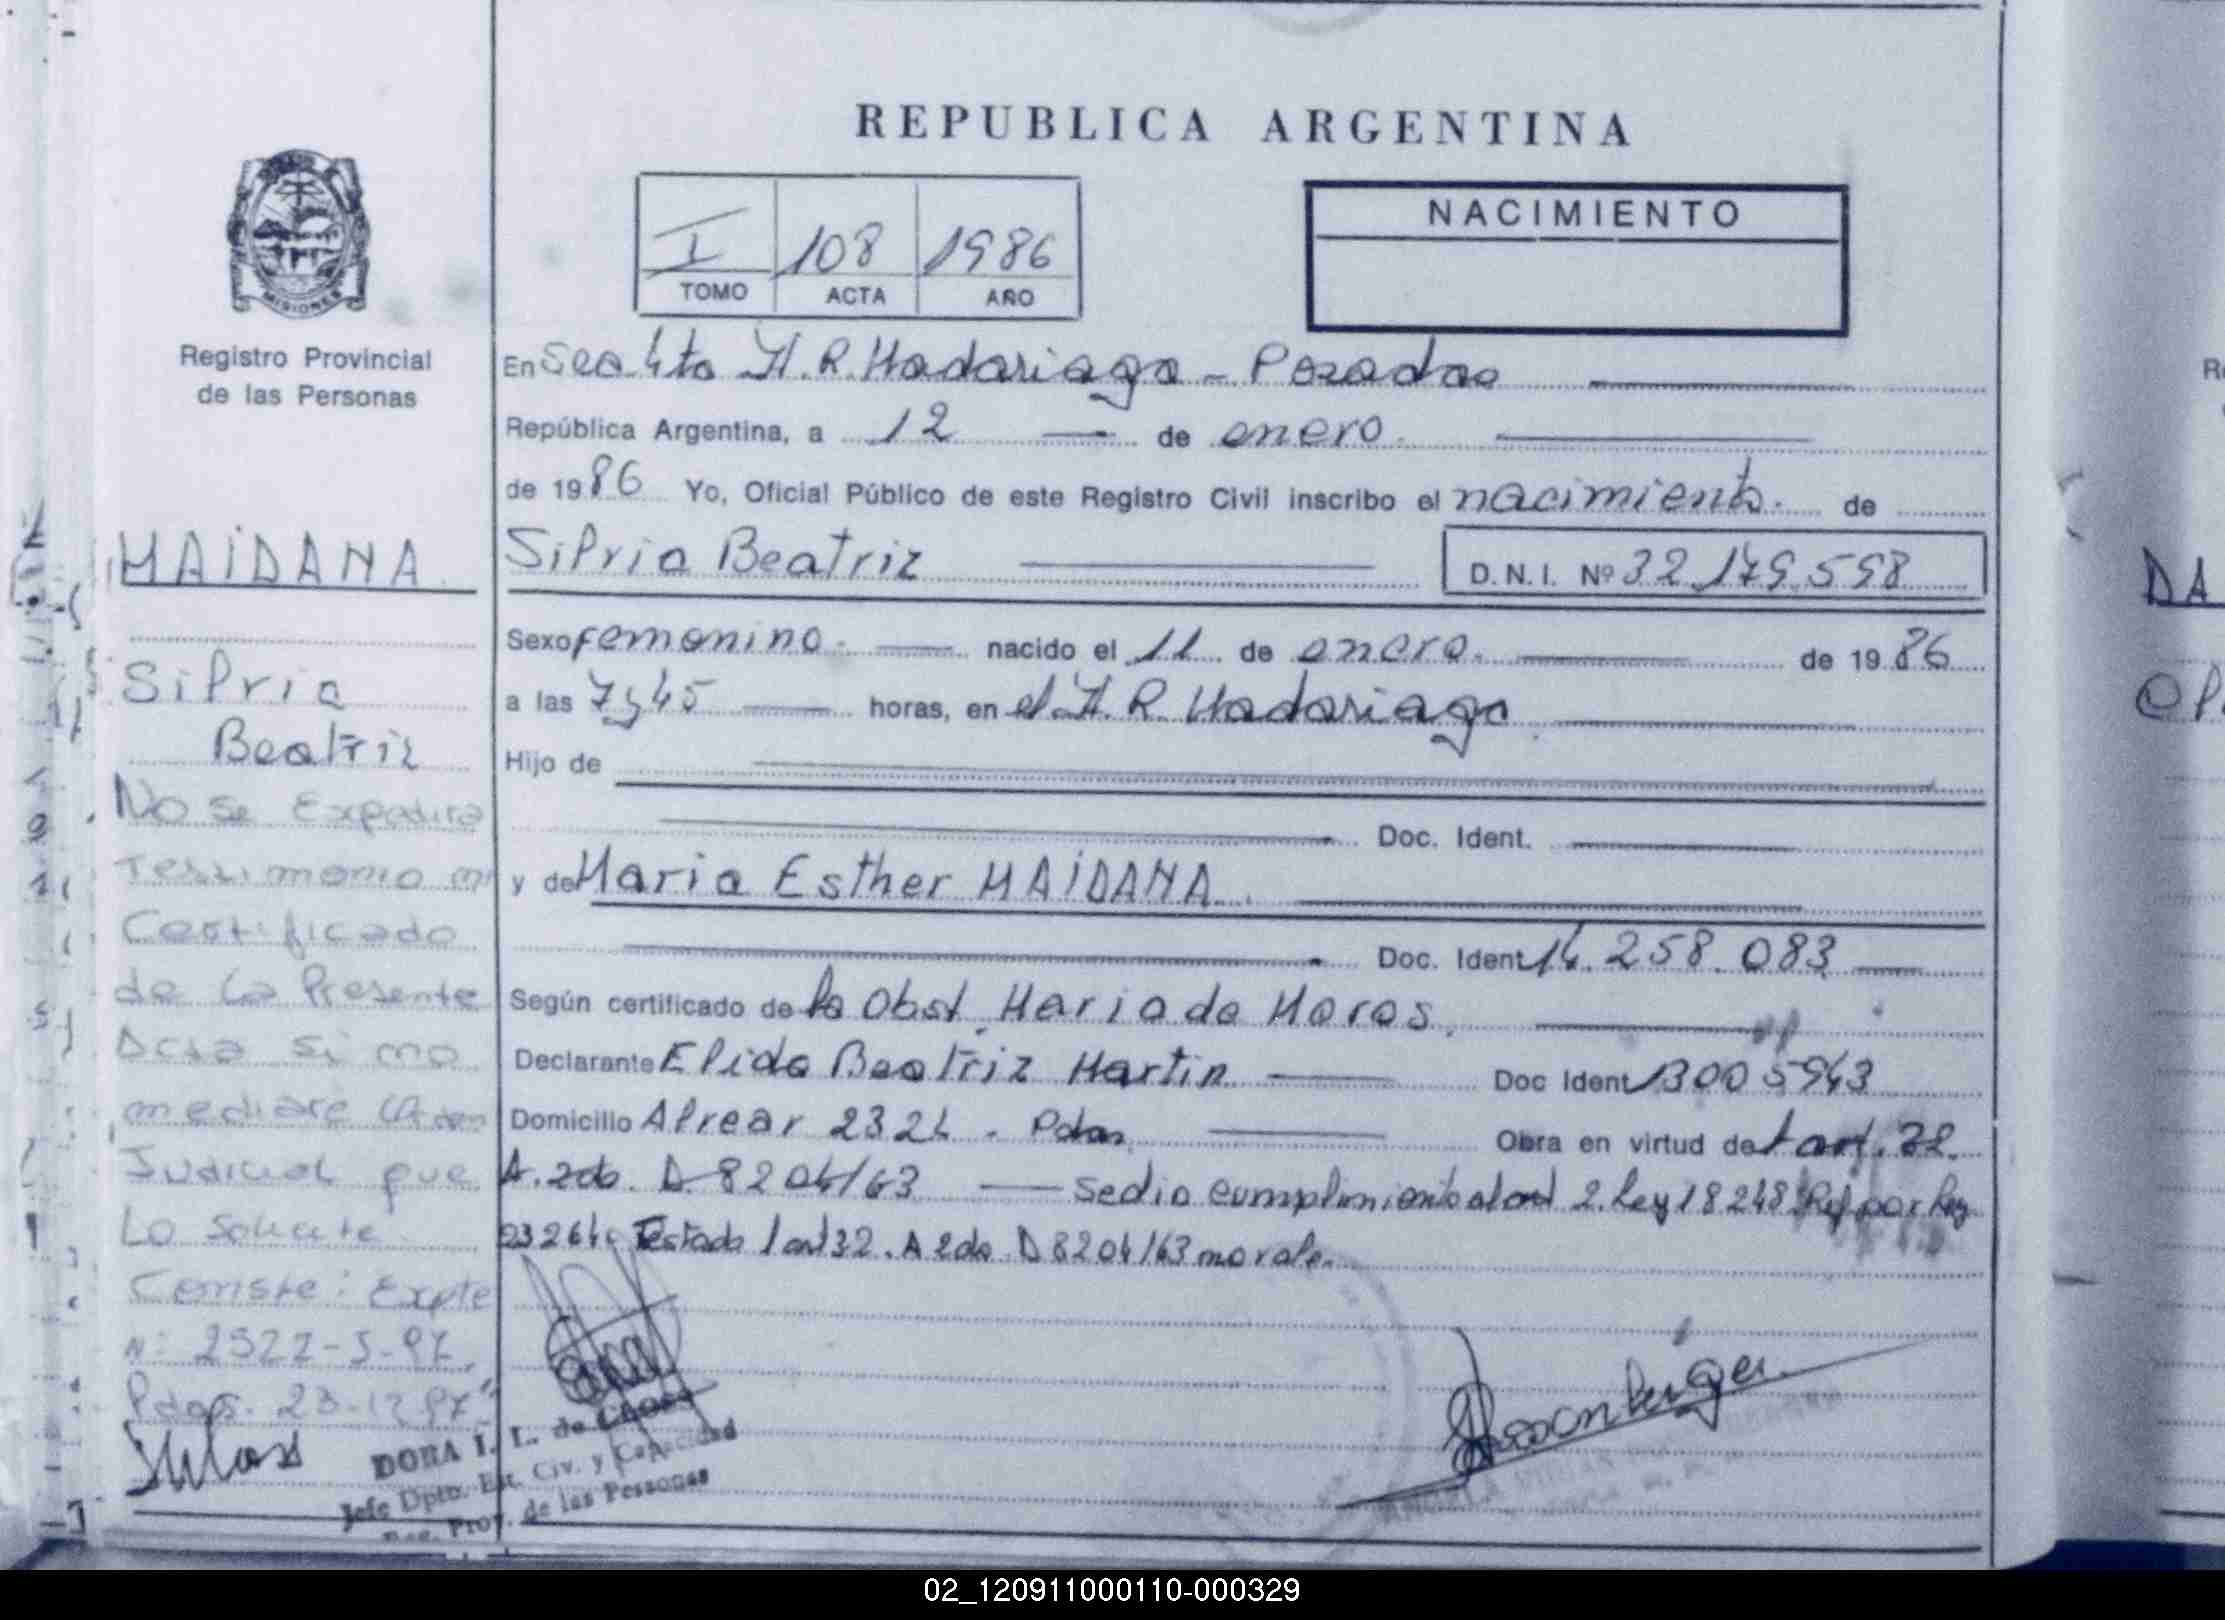 REPUBLICA ARGENTINA
MISIONES
Registro Provincial
de las Personas
I 108 1986
TOMO ACTA AÑO
NACIMIENTO
En Secc 4ta H. R. Madariaga - Posadas
República Argentina, a 12 de enero.
de 1986 Yo, Oficial Público de este Registro Civil inscribo el nacimiento. de
Silvia Beatriz D.N.I. Nº 32.179.598
Sexo femenino. nacido el 11 de enero. de 1986
a las 7y45 horas, en el H. R. Madariaga
Hijo de
Doc. Ident.
y de Maria Esther MAIDANA.
Doc. Ident 14.258.083
Según certificado de la Obst. Maria de Moras.
Declarante Elida Beatriz Martin Doc Ident 13005943
Domicilio Alvear 2324. Pdas Obra en virtud de l art. 32.
A. 2do. D 8204/63 Se dio cumplimiento al art 2. Ley 18248 Ref por Ley
23264. Testado l art 32. A 2do. D 8204/63 no vale.
MAIDANA
Silvia
Beatriz
No se Expedira
Testimonio ni
Certificado
de La Presente
Acta si no
mediare Orden
Judicial que
Lo Solicite.
Conste: Expte
N: 2522-S-97.
Pdas. 23.12.97
DORA I. L. de
Jefe Dpto. Est. Civ. y Capacidad
Reg. Prov. de las Personas
DA
02_120911000110-000329